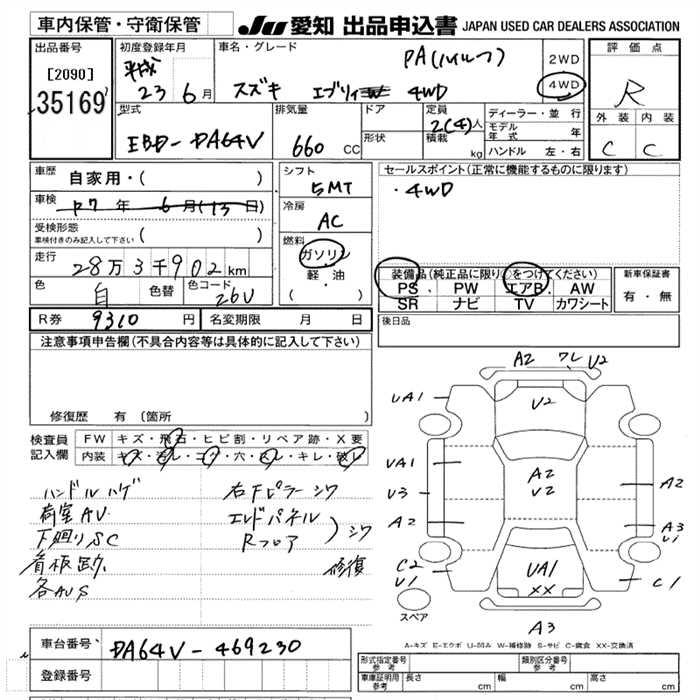 車内保管・守衛保管
JU 愛知 出品申込書 JAPAN USED CAR DEALERS ASSOCIATION
出品番号
[2090]
35169
初度登録年月
平成
23 6月
車名・グレード
PA(ハイルーフ)
スズキ エブリイ 4WD
2WD
4WD
評価点
R
外装 内装
C C
型式
EBD-DA64V
排気量
660 CC
ドア
形状
定員
2(4)人
積載
kg
ディーラー・並行
モデル年式 年
ハンドル 左・右
車歴 自家用・( )
車検 R7年 6月(13日)
受検形態
車検付きのみ記入して下さい ( )
走行
28万3千902km
色 白 色替 色コード 26U
シフト
5MT
冷房
AC
燃料
ガソリン
軽・油
( )
セールスポイント(正常に機能するものに限ります)
・4WD
装備品(純正品に限り○をつけてください)
PS PW エアB AW
SR ナビ TV カワシート
新車保証書
有・無
R券 9310円 名変期限 月 日
後日品
注意事項申告欄(不具合内容等は具体的に記入して下さい)
修復歴 有(箇所
検査員記入欄
FW キズ・飛石・ヒビ割・リペア跡・X要
内装 キズ・汚レ・コゲ・穴・スレ・キレ・破レ
ハンドルハゲ
荷室AU
下廻りSC
看板跡
各AUS
右Fピラーシワ
エンドパネル
Rフロア
シワ
修復
A2 ワレ U2
UA1 U2
UA1 A2
U3 U2 A2
A2 A3
U1
C2 UA1 C1
U1 XX
スペア
A3
A-キズ E-エクボ U-凹み W-補修跡 S-サビ C-腐食 XX-交換済
車台番号 DA64V-469230
登録番号
形式指定番号 参考
類別区分番号 参考
車庫証明用 参考 長さ cm 幅 cm 高さ cm